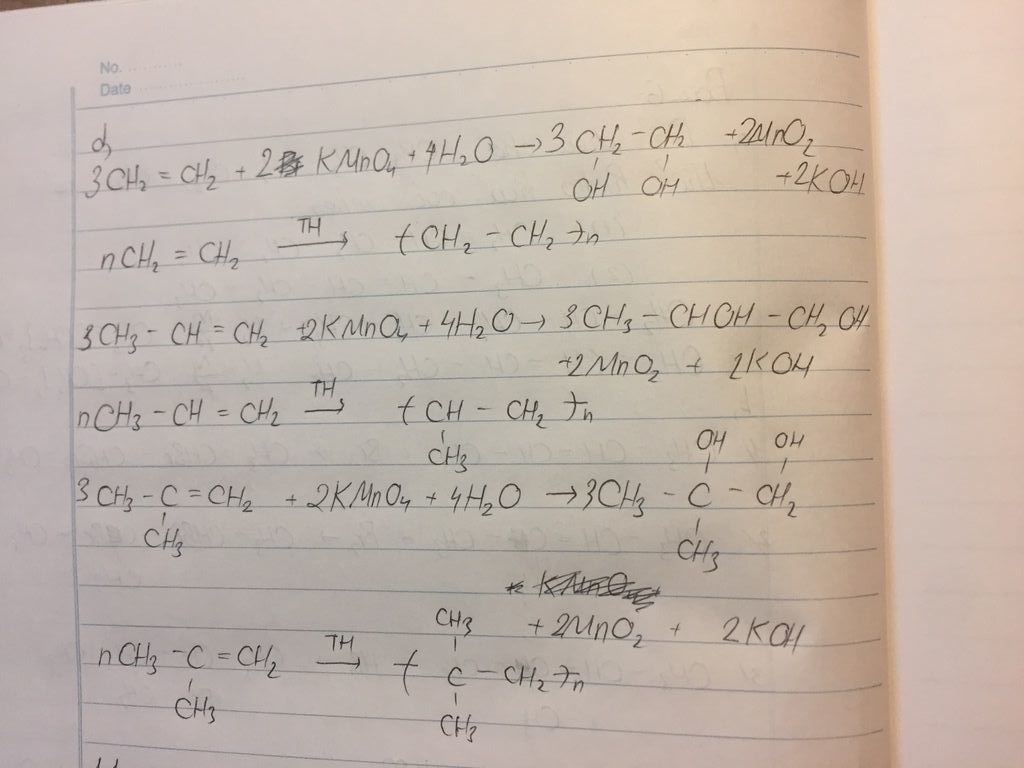 No.
Date
d,
3CH₂ = CH₂ + 2 KMnO₄ + 4H₂O → 3 CH₂ – CH₂ + 2MnO₂
OH OH + 2KOH
nCH₂ = CH₂ TH → (CH₂ – CH₂)n
3CH₃ – CH = CH₂ + 2KMnO₄ + 4H₂O → 3CH₃ – CHOH – CH₂OH
+ 2MnO₂ + 2KOH
nCH₃ – CH = CH₂ TH → (CH – CH₂)n
CH₃
OH OH
3CH₃ – C = CH₂ + 2KMnO₄ + 4H₂O → 3CH₃ – C – CH₂
CH₃ CH₃
+ 2MnO₂ + 2KOH
CH₃
nCH₃ – C = CH₂ TH → (C – CH₂)n
CH₃ CH₃